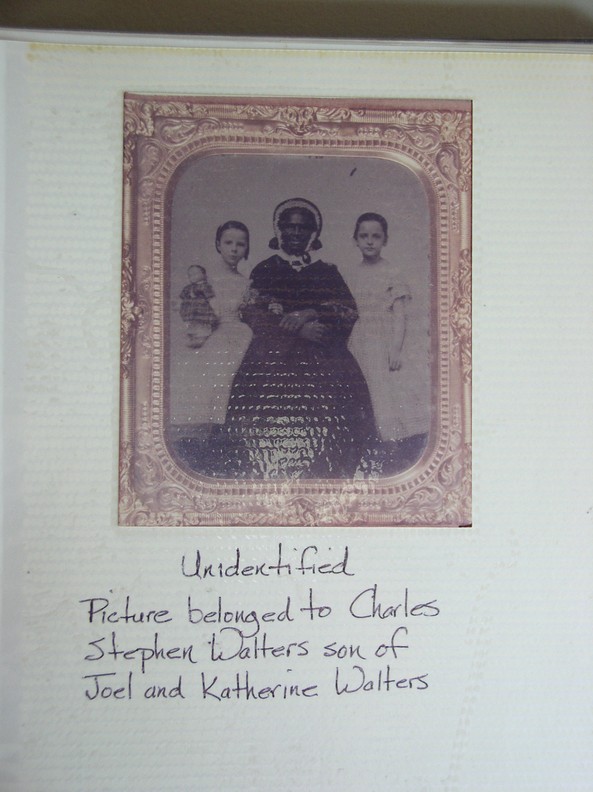 Unidentified
Picture belonged to Charles
Stephen Walters son of
Joel and Katherine Walters